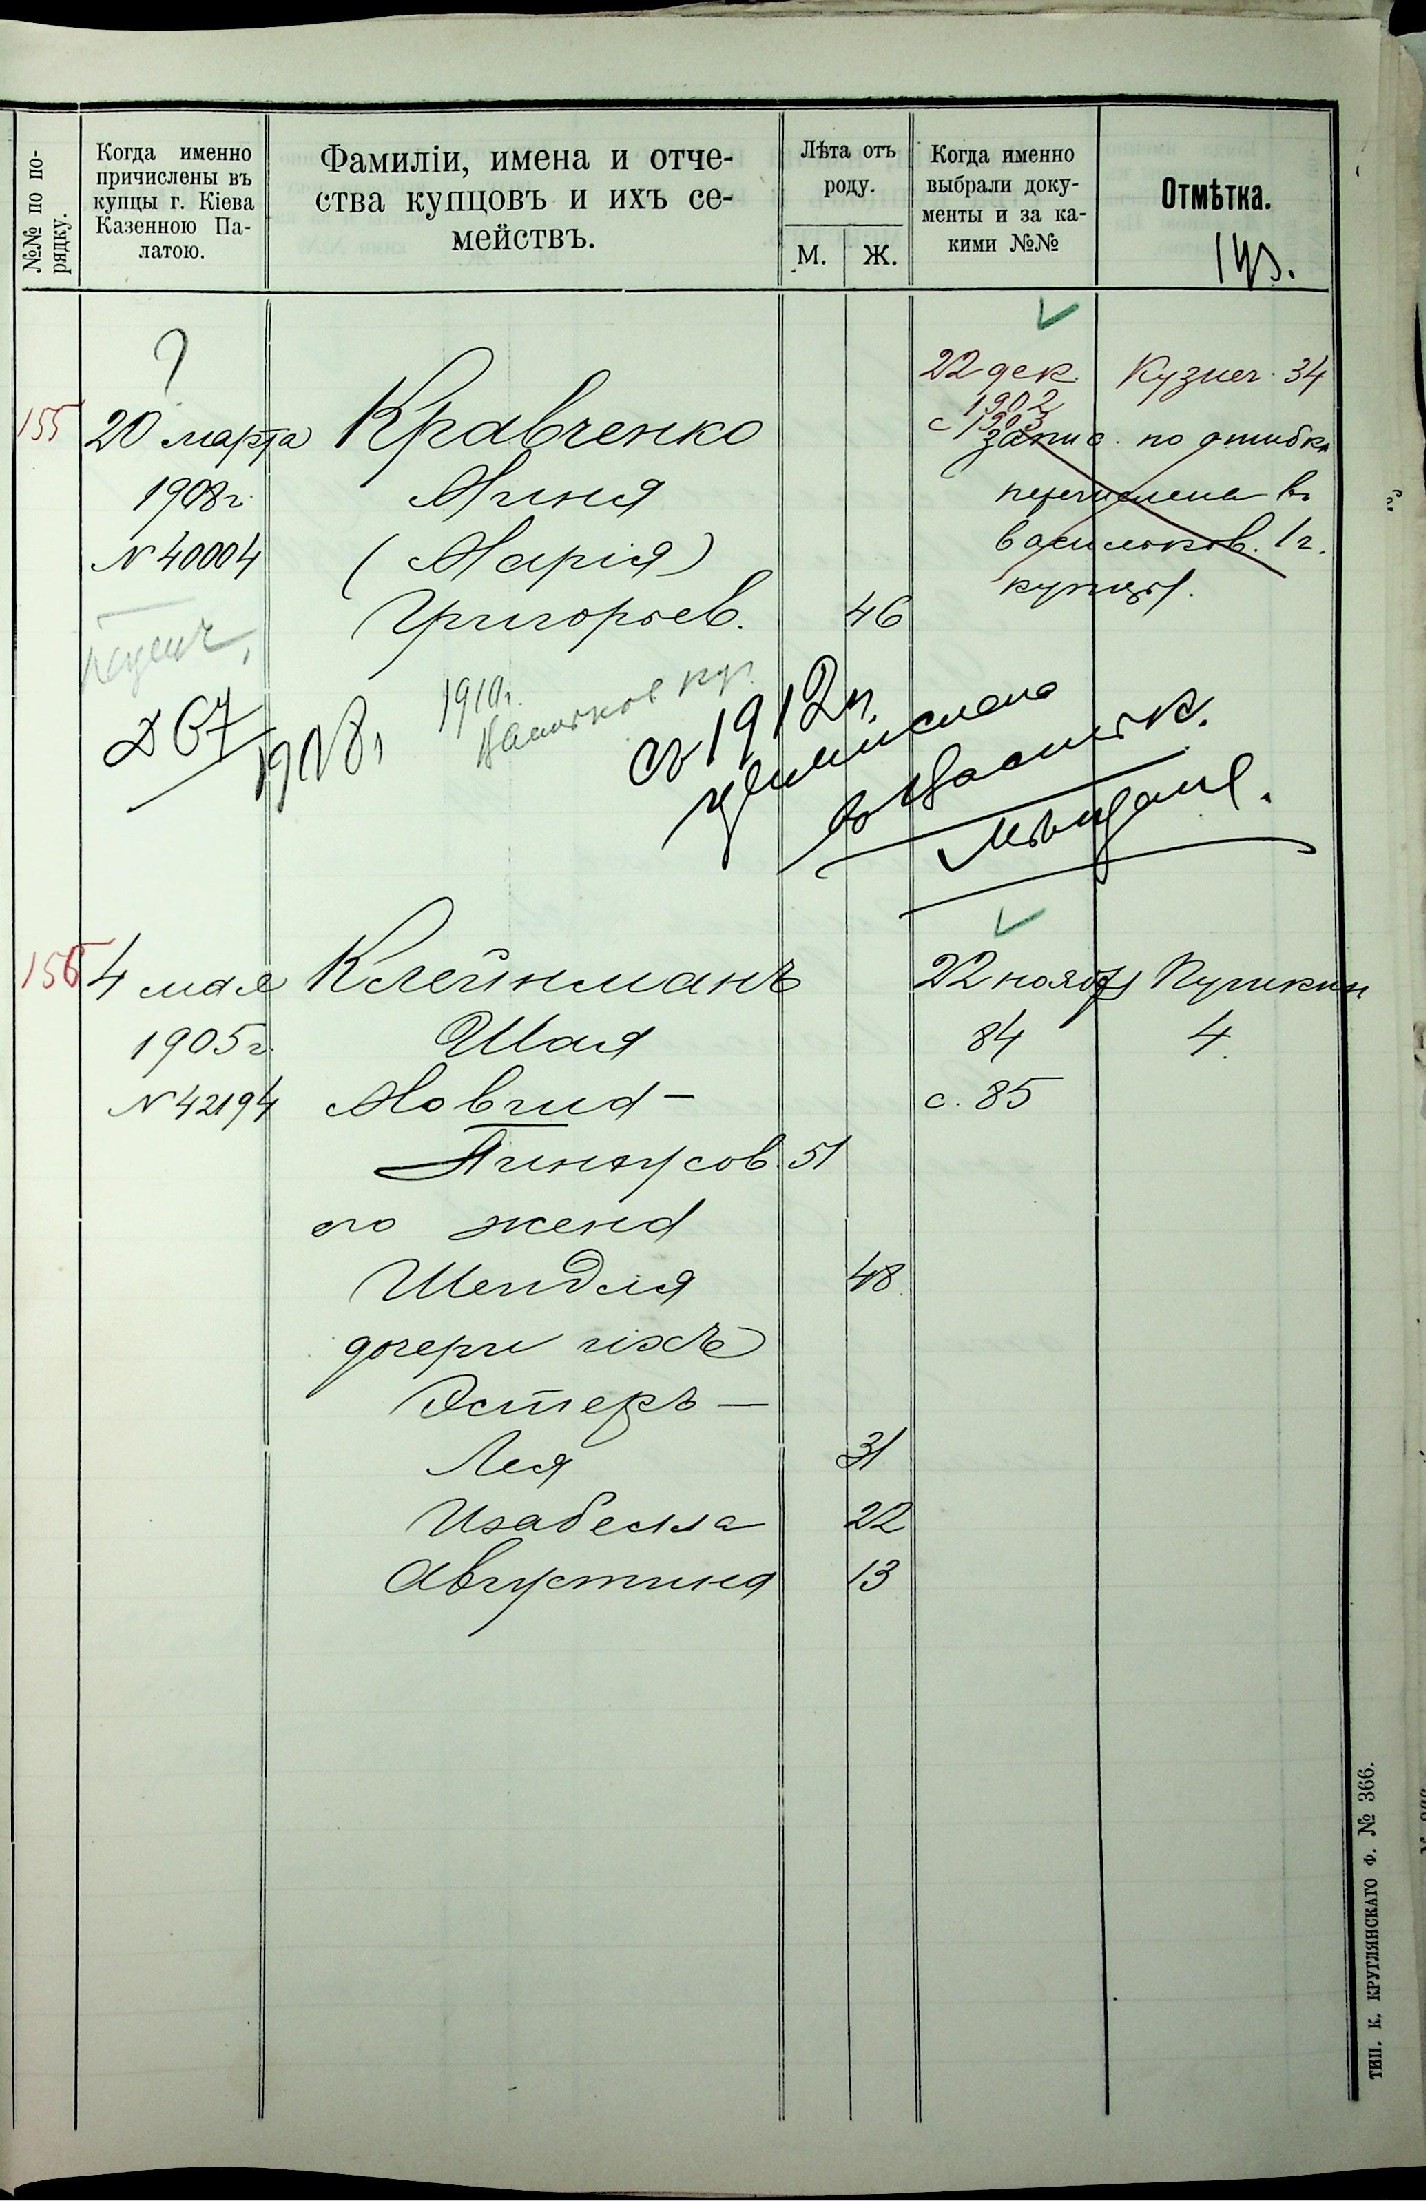 №№ по по-
рядку.
Когда именно
причислены въ
купцы г. Кіева
Казенною Па-
латою.
Фамиліи, имена и отче-
ства купцовъ и ихъ се-
мействъ.
Лѣта отъ
роду.
М. Ж.
Когда именно
выбрали доку-
менты и за ка-
кими №№
Отмѣтка.
?
155
20 марта
1908 г.
№ 40004
Кравченко
Миня
(Марія)
Григорьев. 46
22 дек.
1902
с 1903
Кузнеч. 34
запис. по ошибке
перечислена въ
васильков. 1 г.
купцы.
1908 г.
1910 г.
съ 1912 г.
в Васильк.
мѣщане.
156
4 мая
1905 г.
№ 42194
Клейнманъ
Шая
Мовша-
Пинкусов. 51
его жена
Шейдля 48
дочери ихъ
Эстеръ —
Лея 31
Изабелла 22
Августина 13
22 ноября
84
с. 85
Пушкин
4.
ТИП. К. КРУГЛЯНСКАГО Ф. № 366.